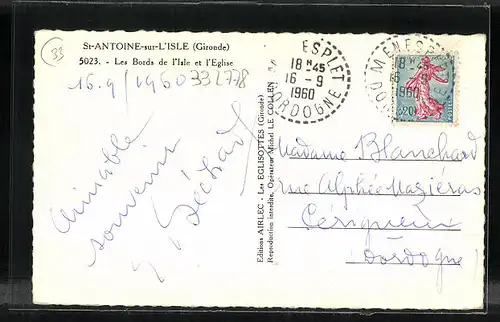 33
St-ANTOINE-sur-L'ISLE (Gironde)
5023. - Les Bords de l'Isle et l'Eglise
16.9/1960 332778
Aimable
souvenir
Béchard
Editions AIRLEC - Les EGLISOTTES (Gironde)
Reproduction interdite. Opérateur Michel LE COLLEN
ESPLET
18 H 45
16 - 9
1960
DORDOGNE
MENESP
18
16 9
1960
DO
0,20
Madame Blanchard
rue Alphée Mazieras
Périgueux
(Dordogne)